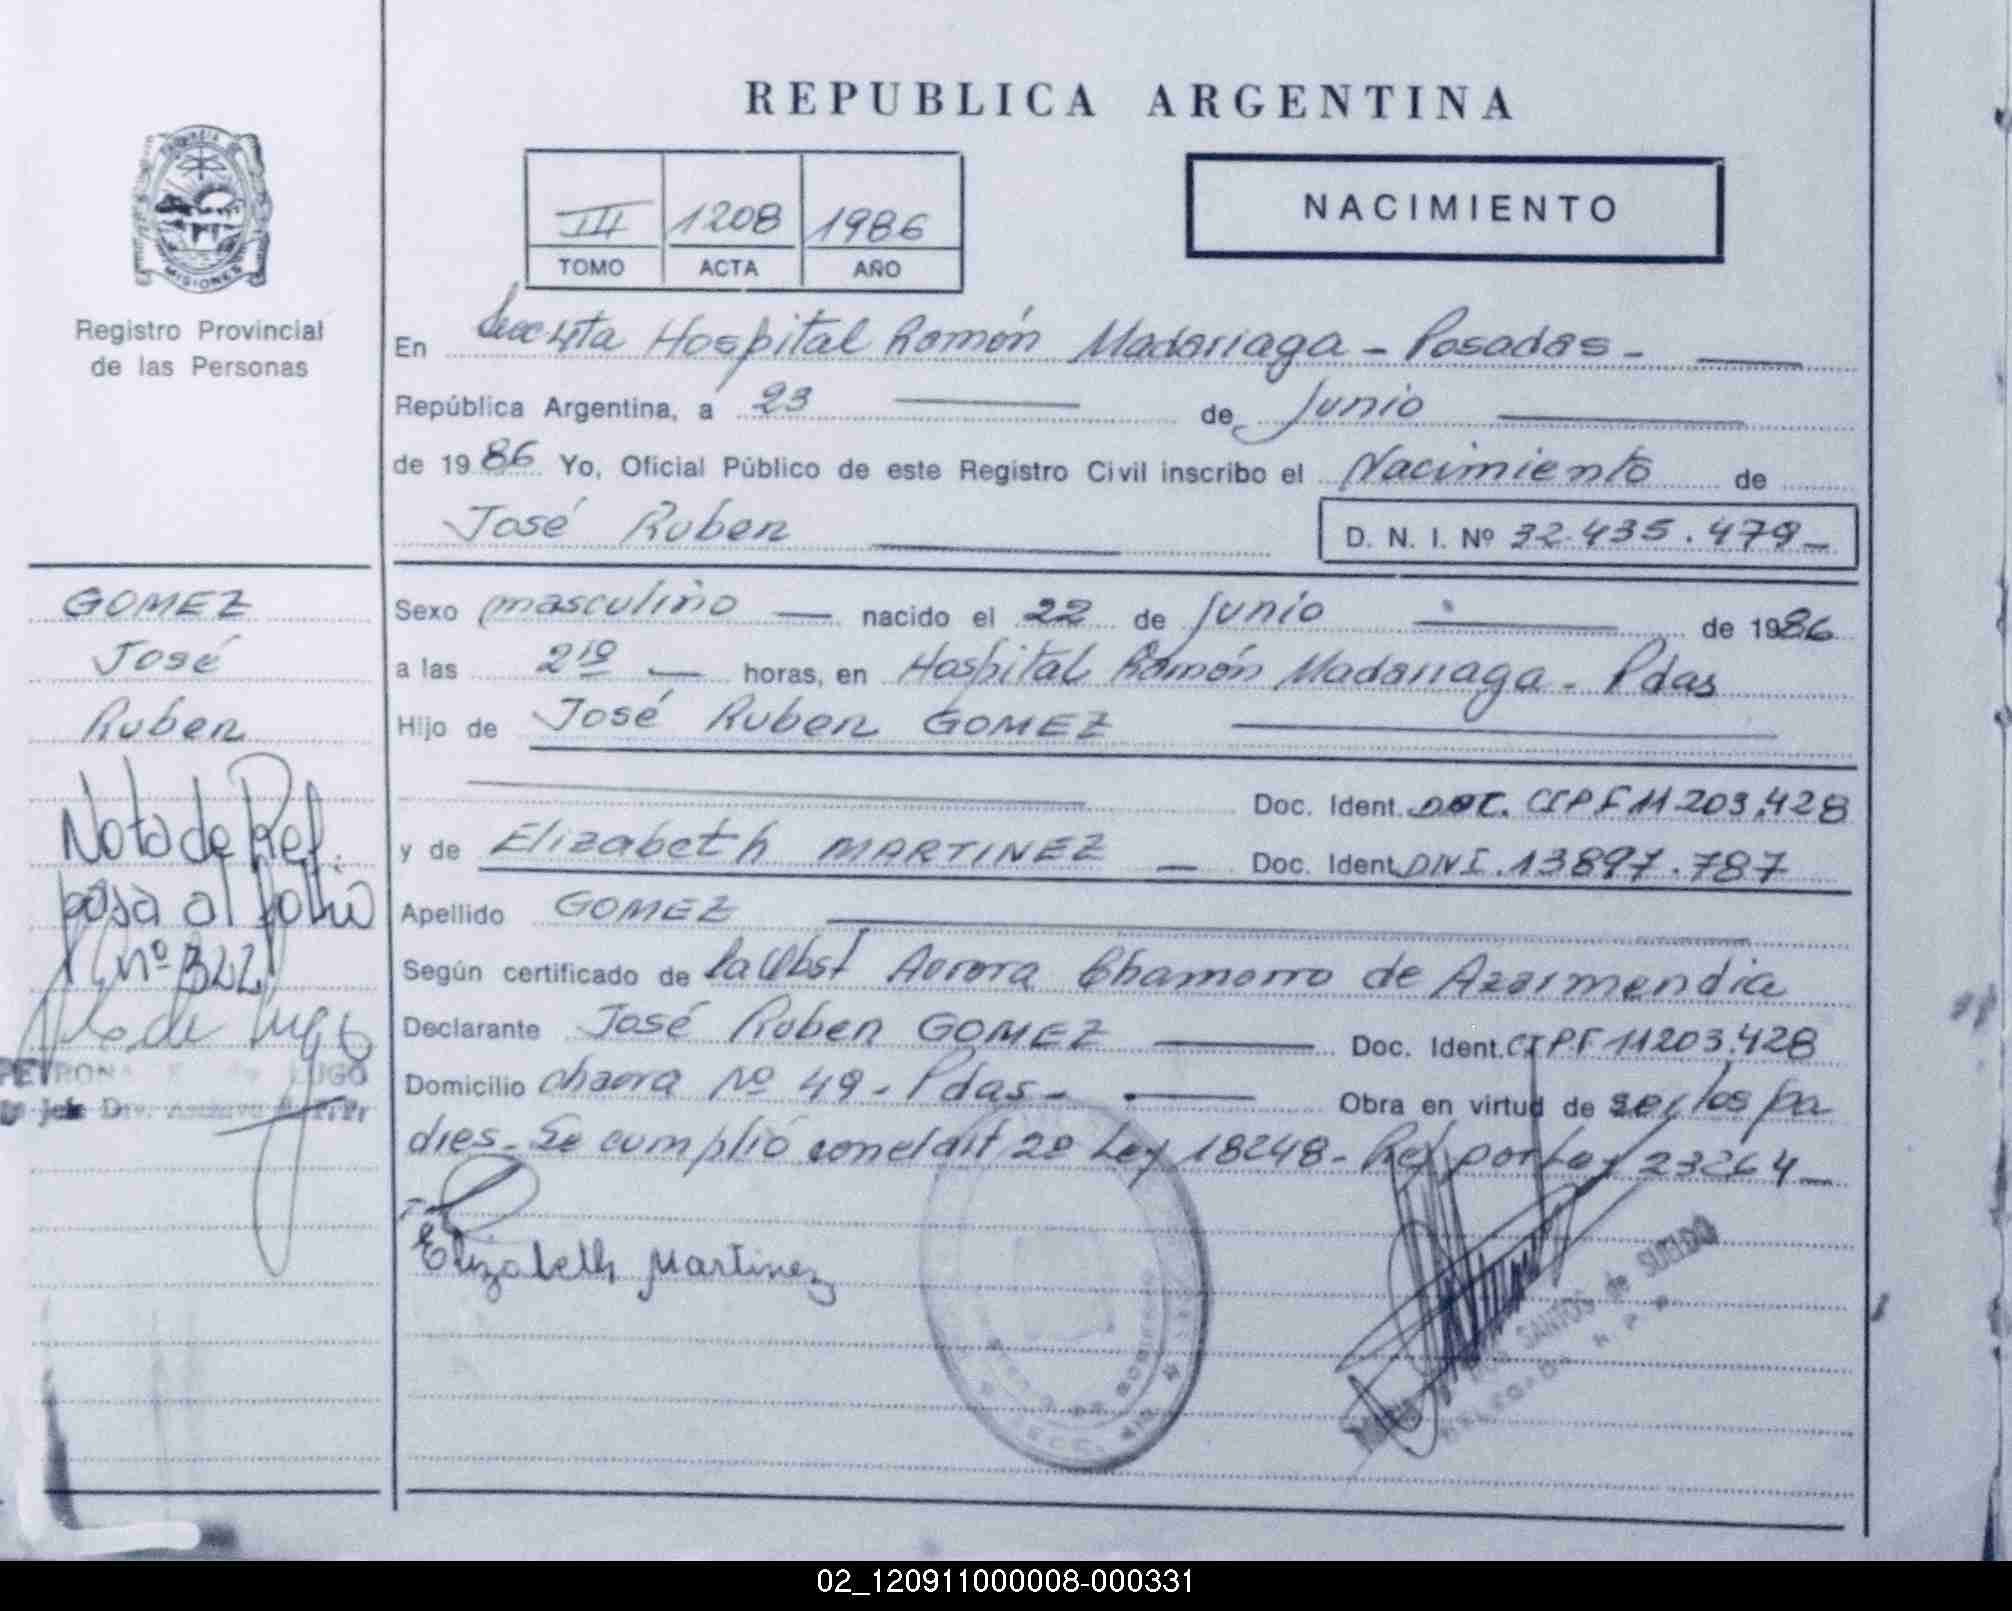 REPUBLICA ARGENTINA
III 1208 1986
TOMO ACTA AÑO
NACIMIENTO
MISIONES
Registro Provincial
de las Personas
En Secc 4ta Hospital Ramón Madariaga - Posadas -
República Argentina, a 23 de Junio
de 1986 Yo, Oficial Público de este Registro Civil inscribo el Nacimiento de
José Ruben D. N. I. Nº 32.435.479-
GOMEZ
José
Ruben
Nota de Ref.
pasa al folio
nº 322
de Lugo
PETRONA de LUGO
Jefe Div. Archivo
Sexo masculino nacido el 22 de Junio de 1986
a las 2 10 horas, en Hospital Ramón Madariaga - Pdas
Hijo de José Ruben GOMEZ
Doc. Ident. CIPF 11203.428
y de Elizabeth MARTINEZ Doc. Ident. DNI. 13897.787
Apellido GOMEZ
Según certificado de la Obst Aurora Chamorro de Azarmendia
Declarante José Ruben GOMEZ Doc. Ident. CIPF 11203.428
Domicilio chacra Nº 49 - Pdas - Obra en virtud de ser los pa
dres - Se cumplió con el art 2º Ley 18248 - Ref por Ley 23264
Elizabeth Martinez
SANTOS de SUELDO